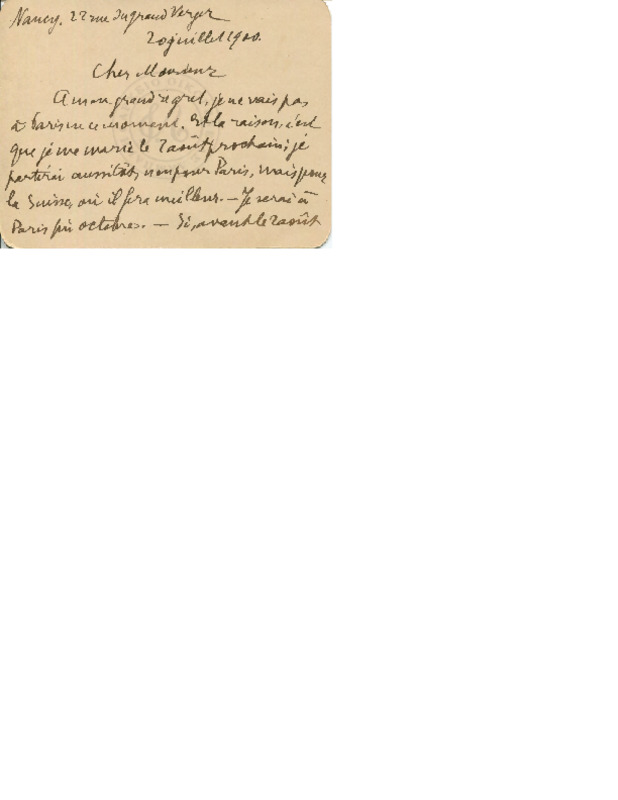 Nancy. 22 rue du grand Verger
20 juillet 1900.
Cher Monsieur
A mon grand regret, je ne vais pas
à Paris en ce moment. Et la raison, c'est
que je me marie le 2 août prochain; je
partirai aussitôt, non pour Paris, mais pour
la Suisse, où il fera meilleur. — Je serai à
Paris fin octobre. — Si, avant le 2 août